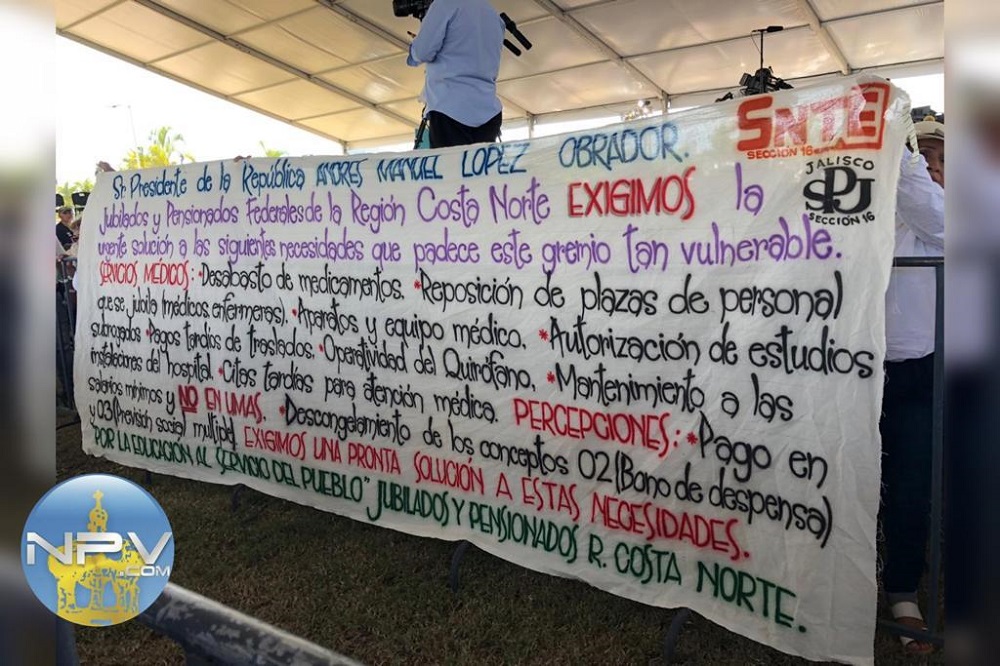 Sr. Presidente de la República ANDRES MANUEL LOPEZ OBRADOR.
SNTE
SECCIÓN 16
JALISCO
SPJ
SECCIÓN 16
Jubilados y Pensionados Federales de la Región Costa Norte EXIGIMOS la
urgente solución a las siguientes necesidades que padece este gremio tan vulnerable.
SERVICIOS MÉDICOS: *Desabasto de medicamentos. *Reposición de plazas de personal
que se jubila (médicos, enfermeras). *Aparatos y equipo médico. *Autorización de estudios
subrogados *Pagos tardíos de traslados. *Operatividad del Quirófano. *Mantenimiento a las
instalaciones del hospital. *Citas tardías para atención médica. PERCEPCIONES: *Pago en
salarios mínimos y NO EN UMAS. *Descongelamiento de los conceptos 02 (Bono de despensa)
y 03 (Previsión social multiple) EXIGIMOS UNA PRONTA SOLUCIÓN A ESTAS NECESIDADES.
"POR LA EDUCACIÓN AL SERVICIO DEL PUEBLO" JUBILADOS Y PENSIONADOS R. COSTA NORTE.
NPV
.COM